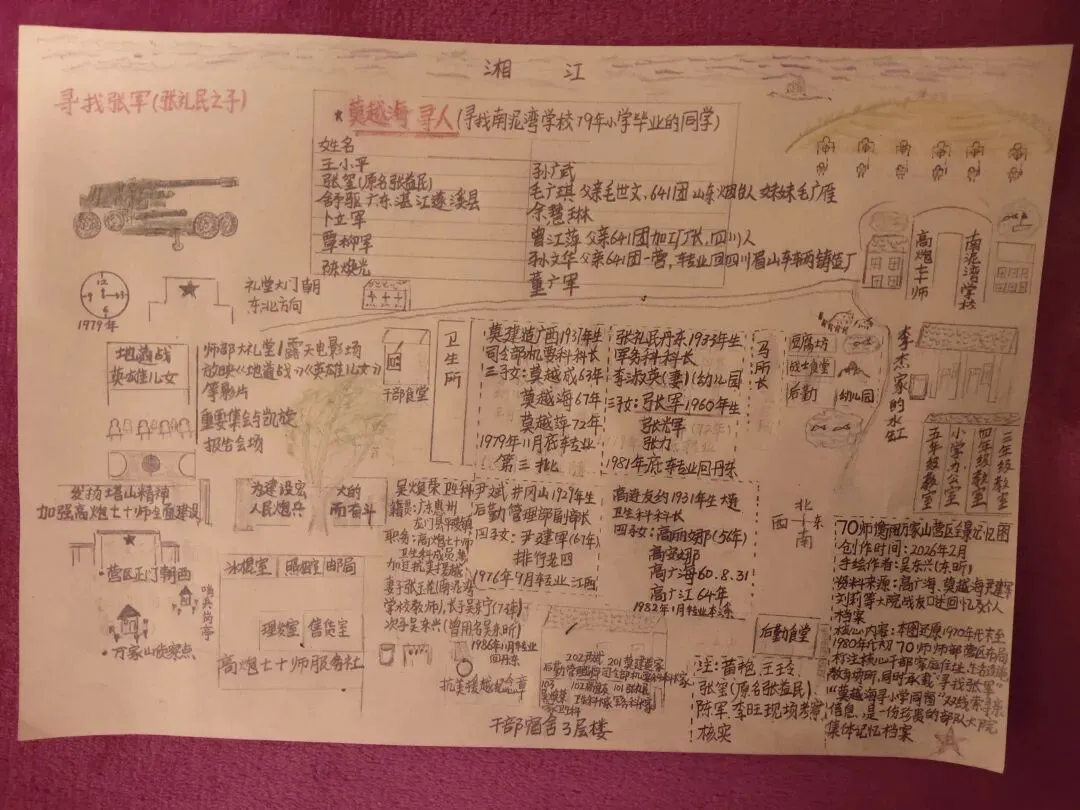 湘 江
寻找张军(张礼民之子)
★莫越海 寻人(寻找南泥湾学校79年小学毕业的同学)
姓名
王小平
张玺(原名张益民)
舒驱 广东湛江遂溪县
卜立军
覃柳军
陈焕光
孙广武
毛广琪 父亲毛世文,641团 山东烟台人 妹妹毛广莲
余慧琳
曾江萍 父亲641团加工厂长,四川人
孙文华 父亲641团一营,转业回四川眉山车辆铸造厂
董广军
高炮七师
南泥湾学校
12
9
3
6
1979年
礼堂大门朝
东北方向
地道战
英雄儿女
师部大礼堂/露天电影场
放映《地道战》《英雄儿女》
等影片
重要集会与凯旋
报告会场
干部食堂
卫生所
莫建造 广西1937年生
司令部机要科科长
三子女:莫越成63年
莫越海67年
莫越萍72年
1979年11月底转业
第三批
张礼民 丹东1933年生
军务科科长
李淑英(妻)(幼儿园
三子女:张军1960年生
张光军(72年)
张力
1981年底转业回丹东
马所长
豆腐坊
战士食堂
后勤
幼儿园
李杰家的水缸
五年级教室
小学办公室
四年级教室
三年级教室
发扬塔山精神
加强高炮七十师全面建设
为建设宏
人民炮兵
大的
而奋斗
吴焕荣 卫生科
籍贯:广东惠州
龙门县平陵镇
职务:高炮七十师
卫生科成员参
加过抗美援越
妻子张玉花(南泥湾
学校教师),长子吴宁(71年)
次子吴东兴(曾用名吴东昕)
1986年1月转业
回丹东
尹斌 井冈山1929年生
后勤管理部副部长
四子女:尹建军(67年)
排行老四
1976年9月转业江西
高连发 约1931年生 大连
卫生科科长
四子女:高丽娜(56年)
高宝娜
高广海 60.8.31
高广江 64年
1982年1月转业本溪
北
西 东
南
营区正门朝西
哨兵岗亭
万家山侦察点
冰棍室
照相室
邮局
理发室
售货室
高炮七十师服务社
抗美援越纪念章
干部宿舍3层楼
后勤食堂
注:苗艳,王玲,
张玺(原名张益民),
陈军,李旺现场考察
核实
70师衡阳万家山营区全景记忆图
创作时间:2026年2月
手绘作者:吴东兴(东昕)
资料来源:高广海、莫越海、尹建军
刘莉等大院战友口述回忆及个人
档案
核心内容:本图还原1970年代末至
1980年代初70师师部营区布局
标注核心干部家庭住址、生活设施
教育场所,同时承载"寻找张军"
"莫越海寻小学同窗"双线索寻亲
信息,是一份珍贵的部队大院
集体记忆档案